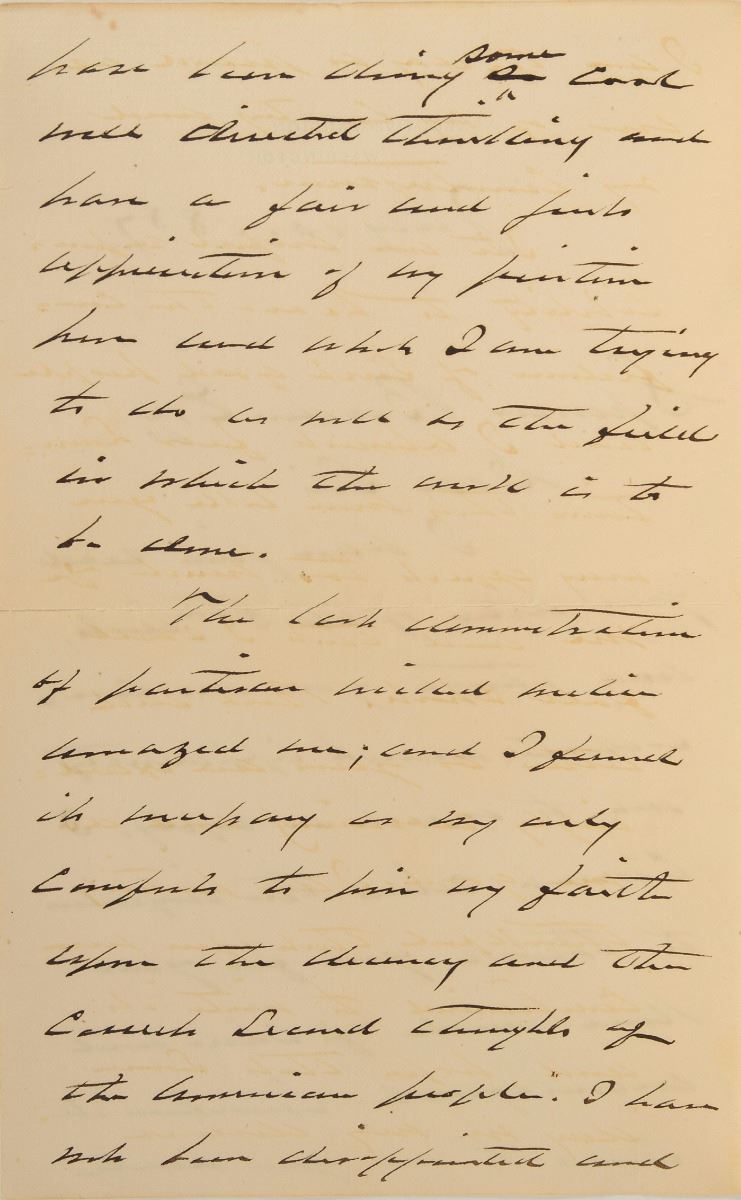 have been doing some cool
well directed thinking and
have a fair and just
appreciation of my position
here and what I am trying
to do as well as the field
in which the work is to
be done.
The last demonstration
of partisan malice
amazed me; and I found
it necessary as my only
comfort to pin my faith
upon the decency and the
second thoughts of
the American people. I have
not been disappointed and